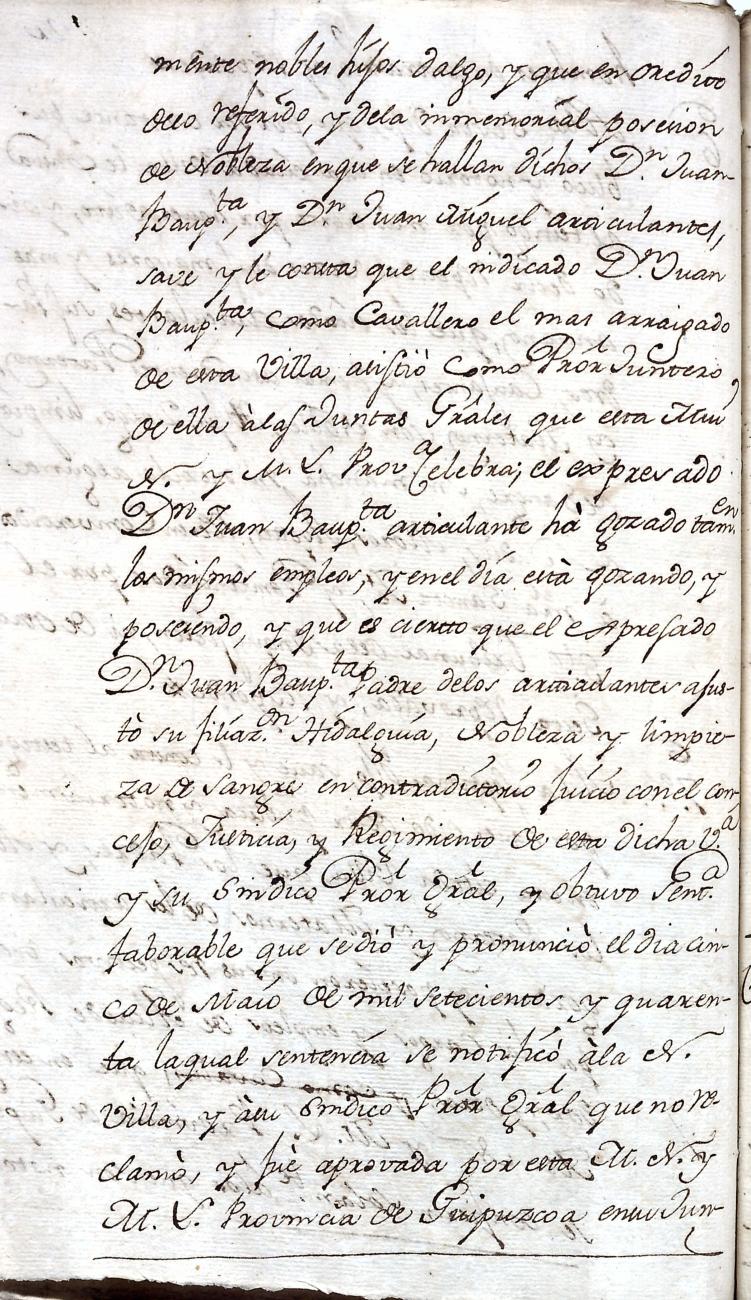 mente nobles hijos dalgo, y que en credito
dello referido, y dela inmemorial posecion
de Nobleza en que se hallan dichos Dn. Juan
Baupta, y Dn Juan Miguel articulantes,
save y le consta que el indicado Dn. Juan
Baupta, como Cavallero el mas arraigado
de esta Villa, asistiò como Prôr Juntero
de ella à las Juntas Grâles que esta Mui
N. y M. L. Prova Celebra; el expresado
Dn Juan Baupta articulante hà gozado tamen.
los mismos empleos, y en el día està gozando, y
poseiendo, y que es cierto que el expresado
Dn. Juan Baupta Padre delos articulantes ajus-
tò su filiazon. Hidalguia, Nobleza y limpie-
za de sangre en contradictorio juicio con el con-
cejo, Justicia, y Regimiento de esta dicha Va.
y su Sindico Prôr Grâl, y obtuvo Senta.
faborable que se diò y pronunciò el dia cin-
co de Maio de mil setecientos y quaren-
ta la qual sentencia se notificó àla N.
Villa, y àsu Sindico Prôr Grâl que no re-
clamò, y fuè aprovada por esta M. N. y
M. L. Provincia de Guipuzcoa en su Jun-